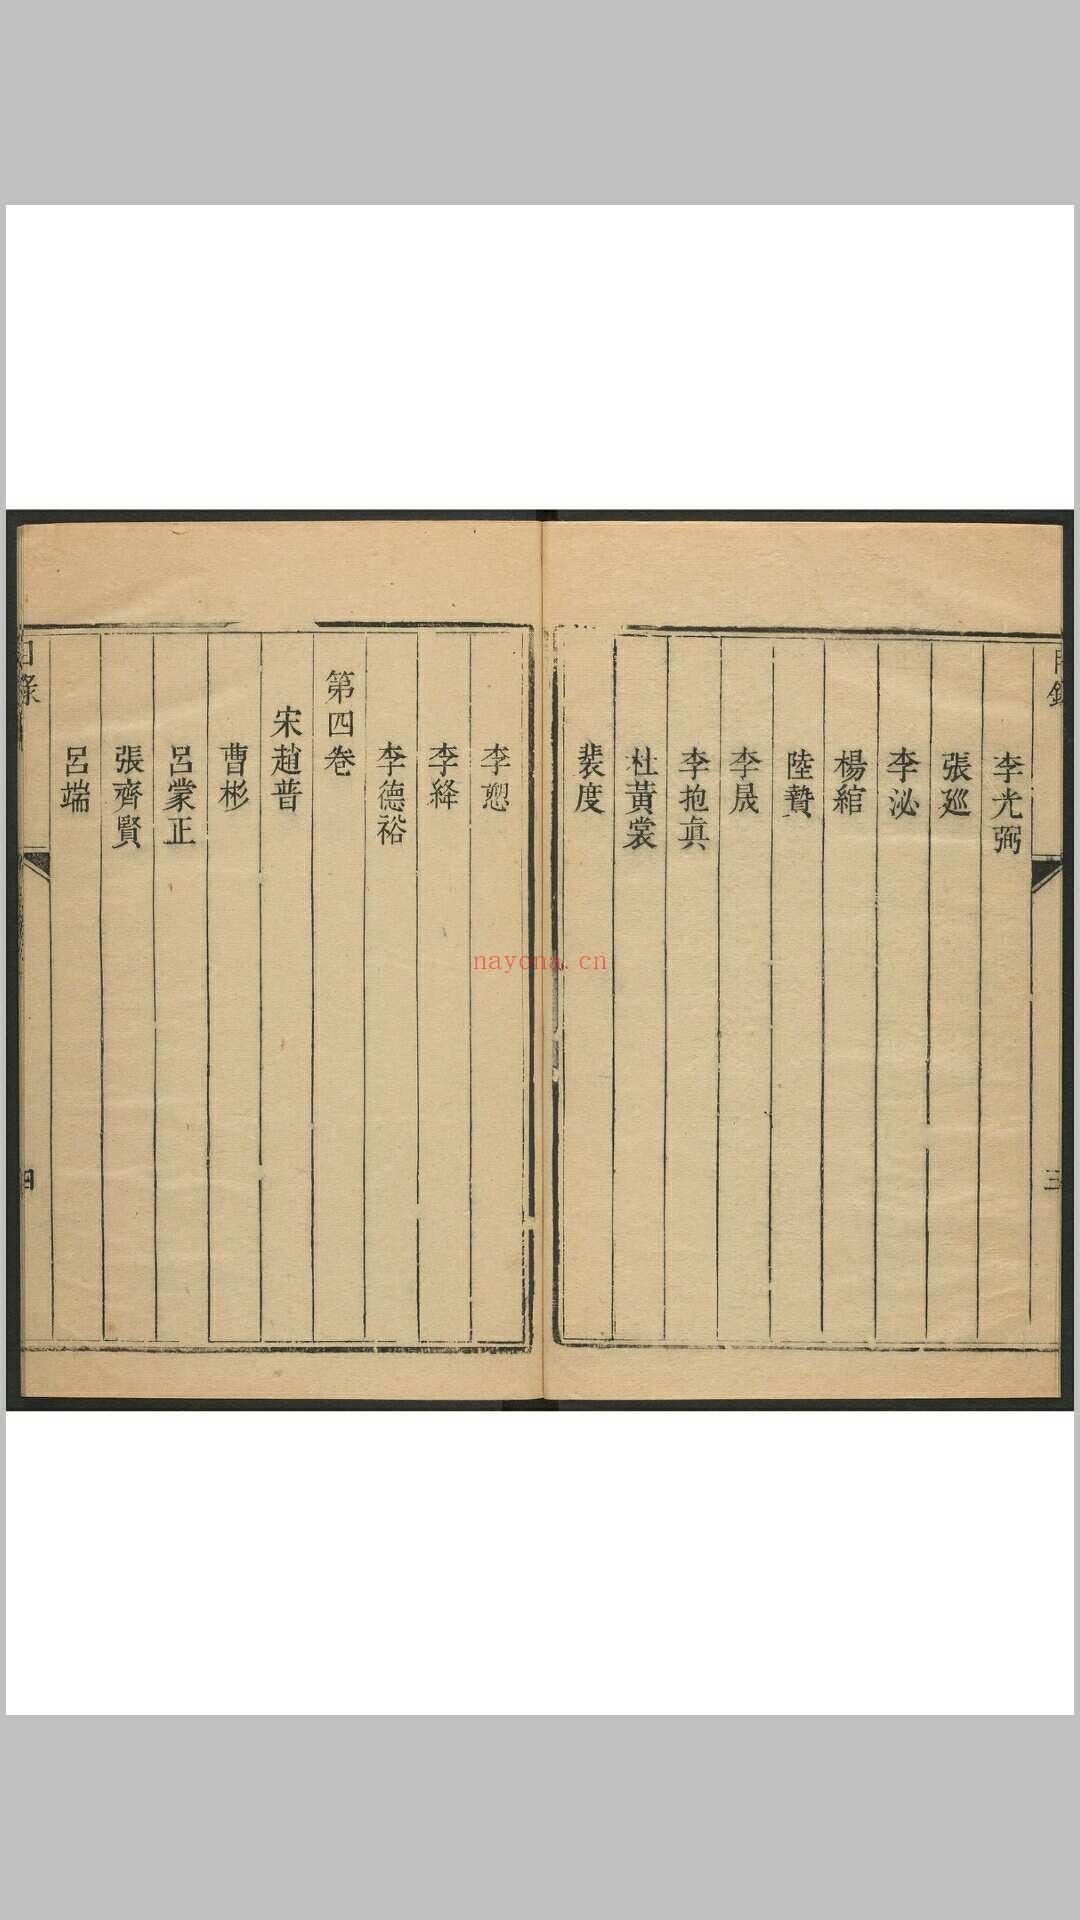 李光弼
張廵
李泌
楊綰
陸贄
李晟
李抱眞
杜黃裳
裴度
李愬
李絳
李德裕
第四卷
宋趙普
曹彬
呂蒙正
張齊賢
呂端
目錄
四
nayona.cn